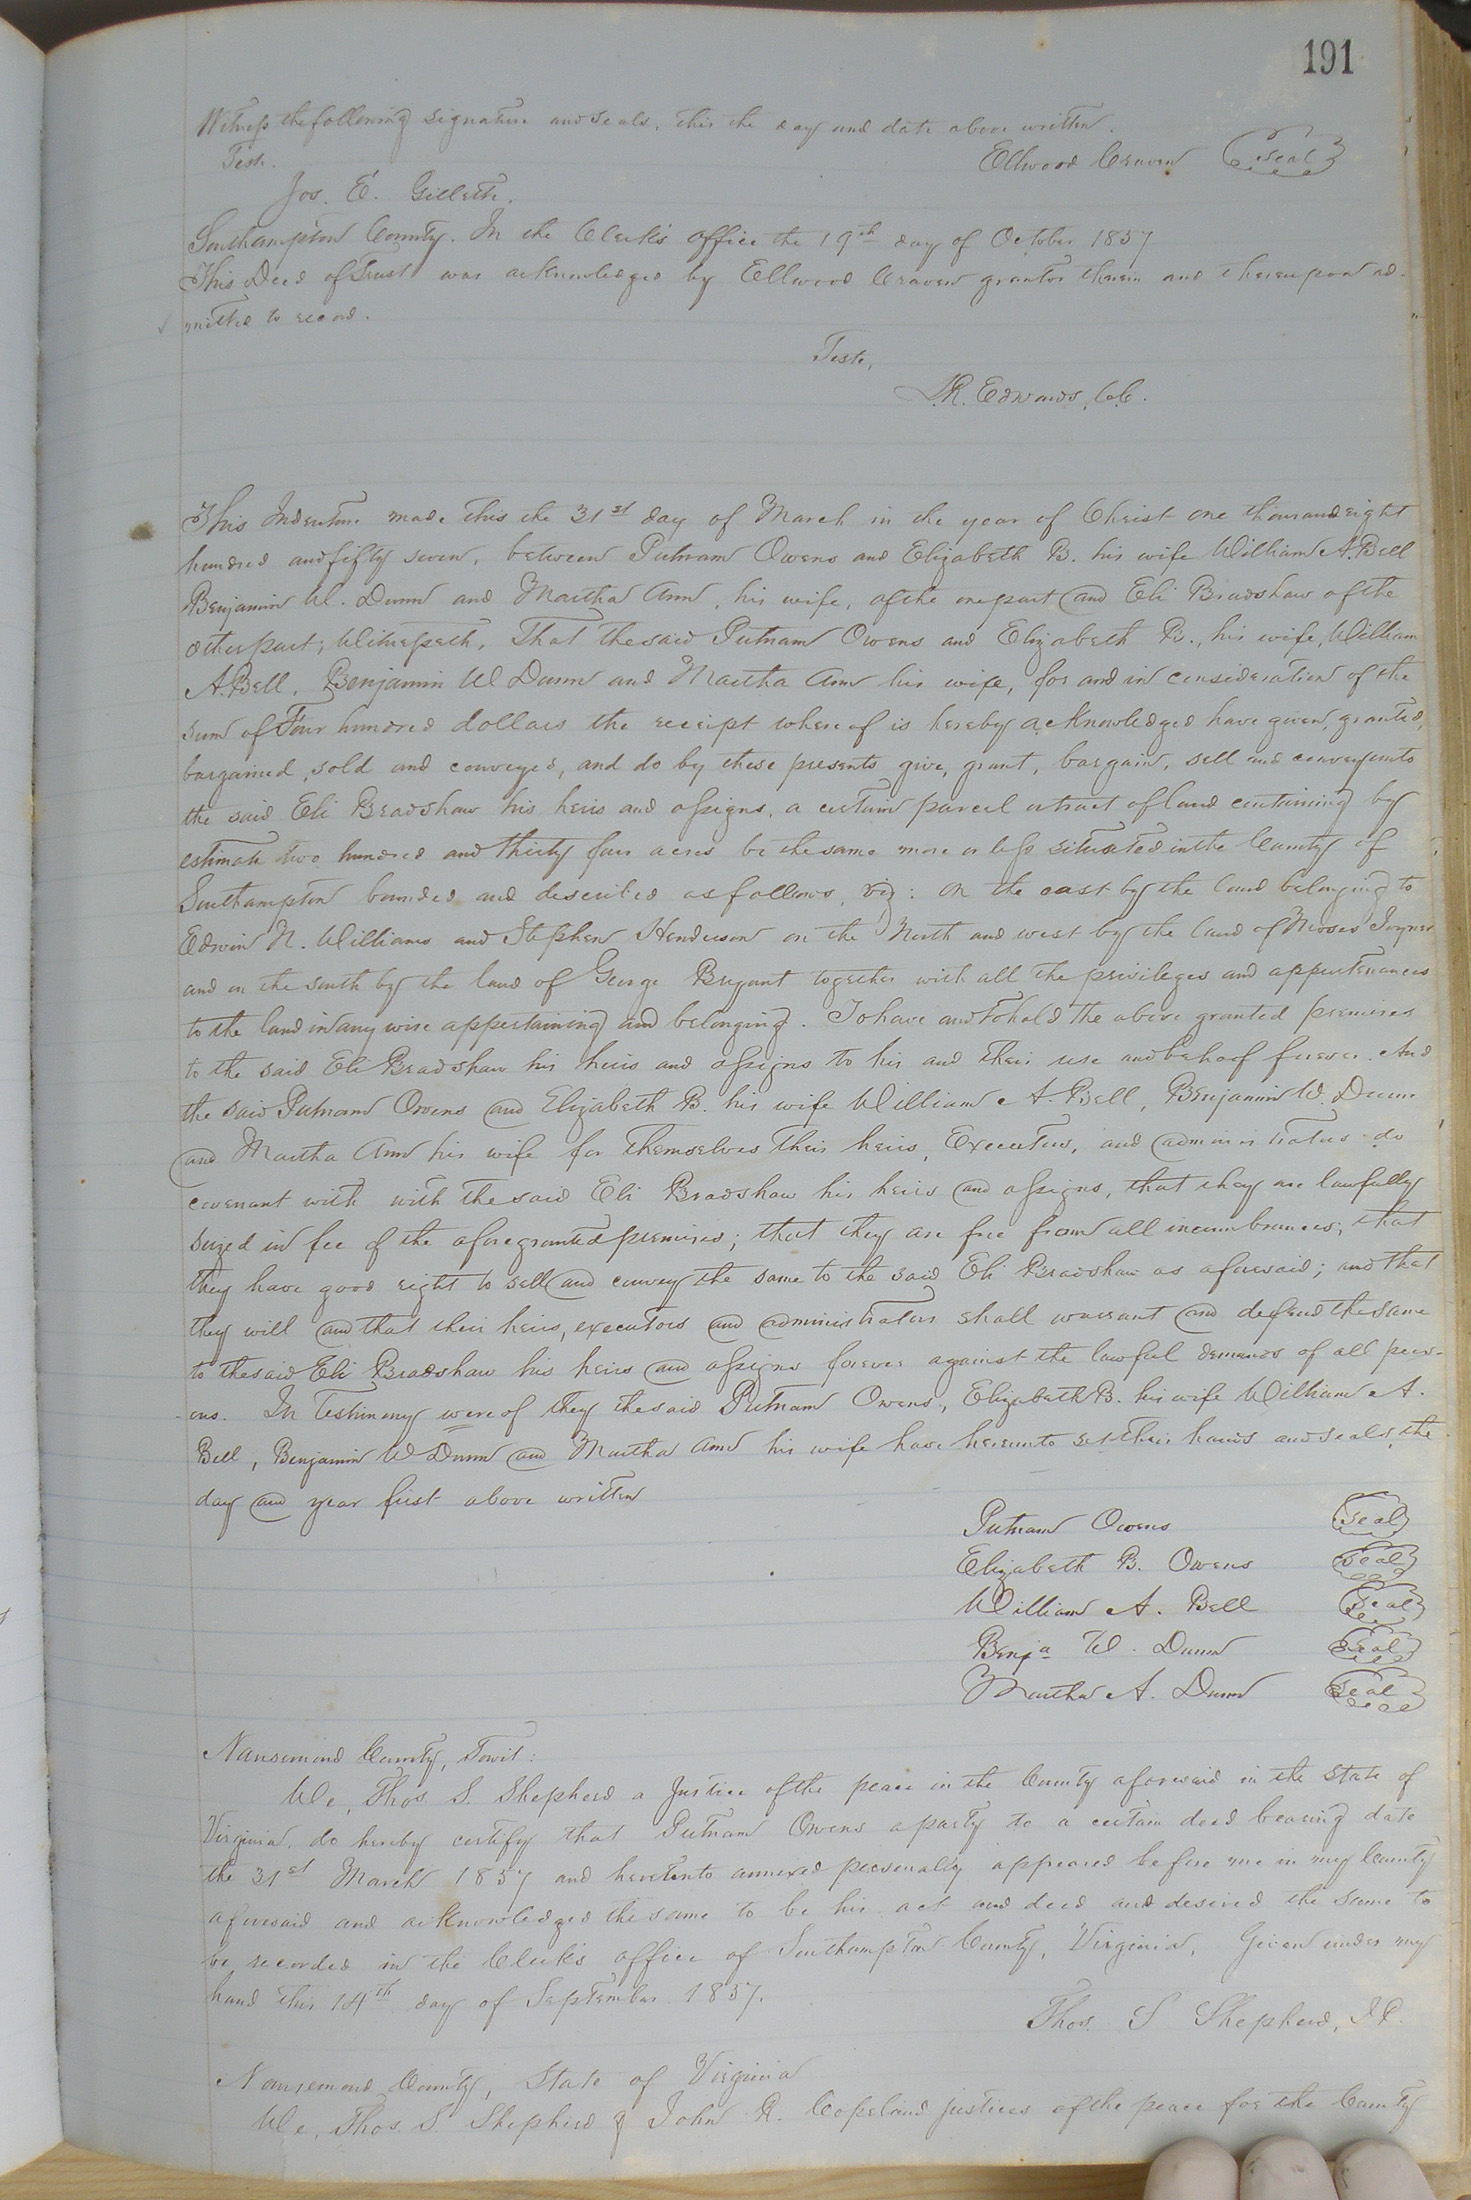 191
Witness the following signature and seals, this the day and date above written.
Test. Ellwood Craven (seal)
Jos. E. Gillette.
Southampton County. In the Clerk's office the 19th day of October 1857
This Deed of Trust was acknowledged by Ellwood Craven grantor therein and thereupon ad-
mitted to record.
Teste,
L.R. Edwards, C.C.
This Indenture made this the 31st day of March in the year of Christ one thousand eight
hundred and fifty seven, between Putnam Owens and Elizabeth B. his wife William A. Bell
Benjamin W. Dunn and Martha Ann, his wife, of the one part and Eli Bradshaw of the
other part; Witnesseth, That the said Putnam Owens and Elizabeth B., his wife, William
A. Bell, Benjamin W Dunn and Martha Ann his wife, for and in consideration of the
sum of Four hundred dollars the receipt whereof is hereby acknowledged have given, granted,
bargained, sold and conveyed, and do by these presents give, grant, bargain, sell and convey unto
the said Eli Bradshaw his heirs and assigns, a certain parcel or tract of land containing by
estimate two hundred and thirty four acres be the same more or less situated in the County of
Southampton bounded and described as follows, viz: on the east by the land belonging to
Edwin N. Williams and Stephen Henderson on the North and west by the land of Moses Joyner
and on the south by the land of George Bryant together with all the privileges and appurtenances
to the land in any wise appertaining and belonging. To have and to hold the above granted premises
to the said Eli Bradshaw his heirs and assigns to his and their use and behoof forever. And
the said Putnam Owens and Elizabeth B. his wife William A. Bell, Benjamin W. Dunn
and Martha Ann his wife for themselves their heirs, Executors, and administrators do
covenant with with the said Eli Bradshaw his heirs and assigns, that they are lawfully
seized in fee of the aforegranted premises; that they are free from all incumbrances; that
they have good right to sell and convey the same to the said Eli Bradshaw as aforesaid; and that
they will and that their heirs, executors and administrators shall warrant and defend the same
to the said Eli Bradshaw his heirs and assigns forever against the lawful demands of all pers-
ons. In Testimony were of they the said Putnam Owens, Elizabeth B. his wife William A.
Bell, Benjamin W Dunn and Martha Ann his wife have hereunto set their hands and seals, the
day and year first above written
Putnam Owens (seal)
Elizabeth B. Owens (seal)
William A. Bell (seal)
Benja W. Dunn (seal)
Martha A. Dunn (seal)
Nansemond County, Towit:
We, Thos. S. Shepherd a Justice of the peace in the County aforesaid in the State of
Virginia, do hereby certify that Putnam Owens a party to a certain deed bearing date
the 31st March 1857 and hereunto annexed personally appeared before me in my County
aforesaid and acknowledged the same to be his act and deed and desired the same to
be recorded in the Clerk's office of Southampton County, Virginia. Given under my
hand this 14th day of September 1857.
Thos. S Shepherd, J.P.
Nansemond County, State of Virginia
We, Thos. S. Shepherd & John R. Copeland justices of the peace for the County